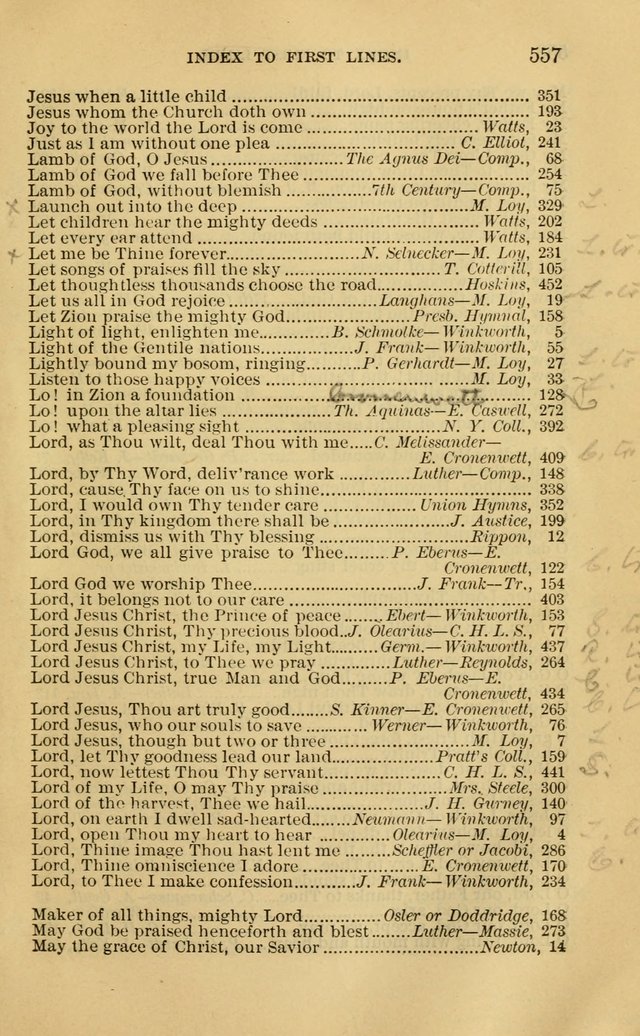 INDEX TO FIRST LINES. 557
Jesus when a little child ........ 351
Jesus whom the Church doth own ........ 193
Joy to the world the Lord is come ........ Watts, 23
Just as I am without one plea ........ C. Elliot, 241
Lamb of God, O Jesus ........ The Agnus Dei—Comp., 68
Lamb of God we fall before Thee ........ 254
Lamb of God, without blemish ........ 7th Century—Comp., 75
x Launch out into the deep ........ M. Loy, 329
Let children hear the mighty deeds ........ Watts, 202
Let every ear attend ........ Watts, 184
x Let me be Thine forever ........ N. Selnecker—M. Loy, 231
Let songs of praises fill the sky ........ T. Cotterill, 105
Let thoughtless thousands choose the road ........ Hoskins, 452
Let us all in God rejoice ........ Langhans—M. Loy, 19
Let Zion praise the mighty God ........ Presb. Hymnal, 158
Light of light, enlighten me ........ B. Schmolke—Winkworth, 5
Light of the Gentile nations ........ J. Frank—Winkworth, 55
Lightly bound my bosom, ringing ........ P. Gerhardt—M. Loy, 27
Listen to those happy voices ........ M. Loy, 33
Lo! in Zion a foundation ........ 128
Lo! upon the altar lies ........ Th. Aquinas—E. Caswell, 272
Lo! what a pleasing sight ........ N. Y. Coll., 392
Lord, as Thou wilt, deal Thou with me ..... C. Melissander—
E. Cronenwett, 409
Lord, by Thy Word, deliv'rance work ........ Luther—Comp., 148
Lord, cause Thy face on us to shine ........ 338
Lord, I would own Thy tender care ........ Union Hymns, 352
Lord, in Thy kingdom there shall be ........ J. Austice, 199
Lord, dismiss us with Thy blessing ........ Rippon, 12
Lord God, we all give praise to Thee ........ P. Eberus—E.
Cronenwett, 122
Lord God we worship Thee ........ J. Frank—Tr., 154
Lord, it belongs not to our care ........ 403
Lord Jesus Christ, the Prince of peace ..... Ebert—Winkworth, 153
Lord Jesus Christ, Thy precious blood.. J. Olearius—C. H. L. S., 77
Lord Jesus Christ, my Life, my Light ..... Germ.—Winkworth, 437
Lord Jesus Christ, to Thee we pray ........ Luther—Reynolds, 264
Lord Jesus Christ, true Man and God ....... P. Eberus—E.
Cronenwett, 434
Lord Jesus, Thou art truly good ........ S. Kinner—E. Cronenwett, 265
Lord Jesus, who our souls to save ........ Werner—Winkworth, 76
Lord Jesus, though but two or three ........ M. Loy, 7
Lord, let Thy goodness lead our land ........ Pratt's Coll., 159
Lord, now lettest Thou Thy servant ........ C. H. L. S., 441
Lord of my Life, O may Thy praise ........ Mrs. Steele, 300
Lord of the harvest, Thee we hail ........ J. H. Gurney, 140
Lord, on earth I dwell sad-hearted ........ Neumann—Winkworth, 97
Lord, open Thou my heart to hear ........ Olearius—M. Loy, 4
Lord, Thine image Thou hast lent me ........ Scheffler or Jacobi, 286
Lord, Thine omniscience I adore ........ E. Cronenwett, 170
Lord, to Thee I make confession ........ J. Frank—Winkworth, 234
Maker of all things, mighty Lord ........ Osler or Doddridge, 168
May God be praised henceforth and blest ........ Luther—Massie, 273
May the grace of Christ, our Savior ........ Newton, 14